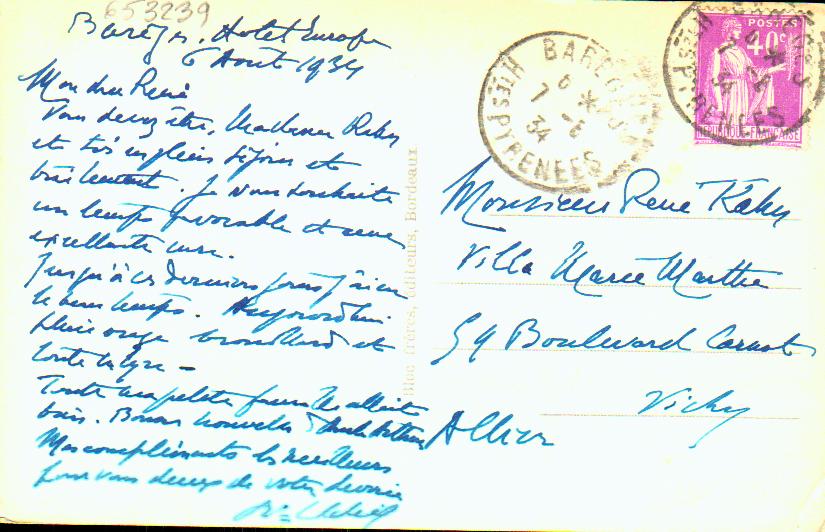 653239
Barèges. Hotel Europe
6 Août 1934
Mon cher René
Vous devez être, Madame Kahn
et toi en plein séjour et
traitement. Je vous souhaite
un temps favorable et une
excellente cure.
Jusqu'à ces derniers jours j'ai eu
le beau temps. Aujourd'hui
pluie orage brouillard et
toute la lyre -
Toute ma petite famille allait
bien. Bonnes nouvelles
Mes compliments les meilleurs
pour vous deux de votre
Bloc frères, éditeurs, Bordeaux
BAREGES
7 -8
34
HTES PYRENEES
POSTES
40c
REPUBLIQUE FRANÇAISE
Monsieur René Kahn
Villa Marie Marthe
59 Boulevard Carnot
Vichy
Allier